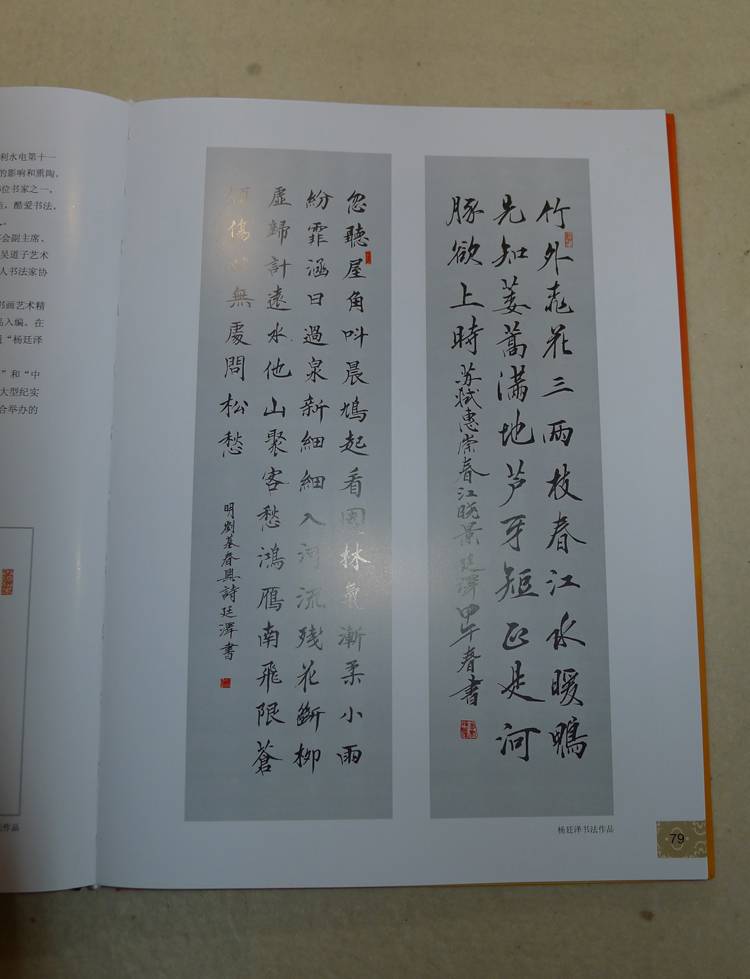 利水电第十一
的影响和熏陶、
位书家之一。
酷爱书法、
会副主席、
吴道子艺术
人书法家协
书画艺术精
品入编。在
“杨廷泽
”和“中
大型纪实
合举办的
作品
竹外桃花三两枝春江水暖鸭
先知蒌蒿满地芦牙短正是河
豚欲上時
苏轼惠崇春江晓景廷澤甲午春書
忽聽屋角叫晨鳩起看園林氣漸柔小雨
紛霏涵日過泉新細細入河流残花斷柳
虛歸計遠水他山聚客愁鴻雁南飛限蒼
傷無處問松愁
明劉基春興詩廷澤書
杨廷泽书法作品
79